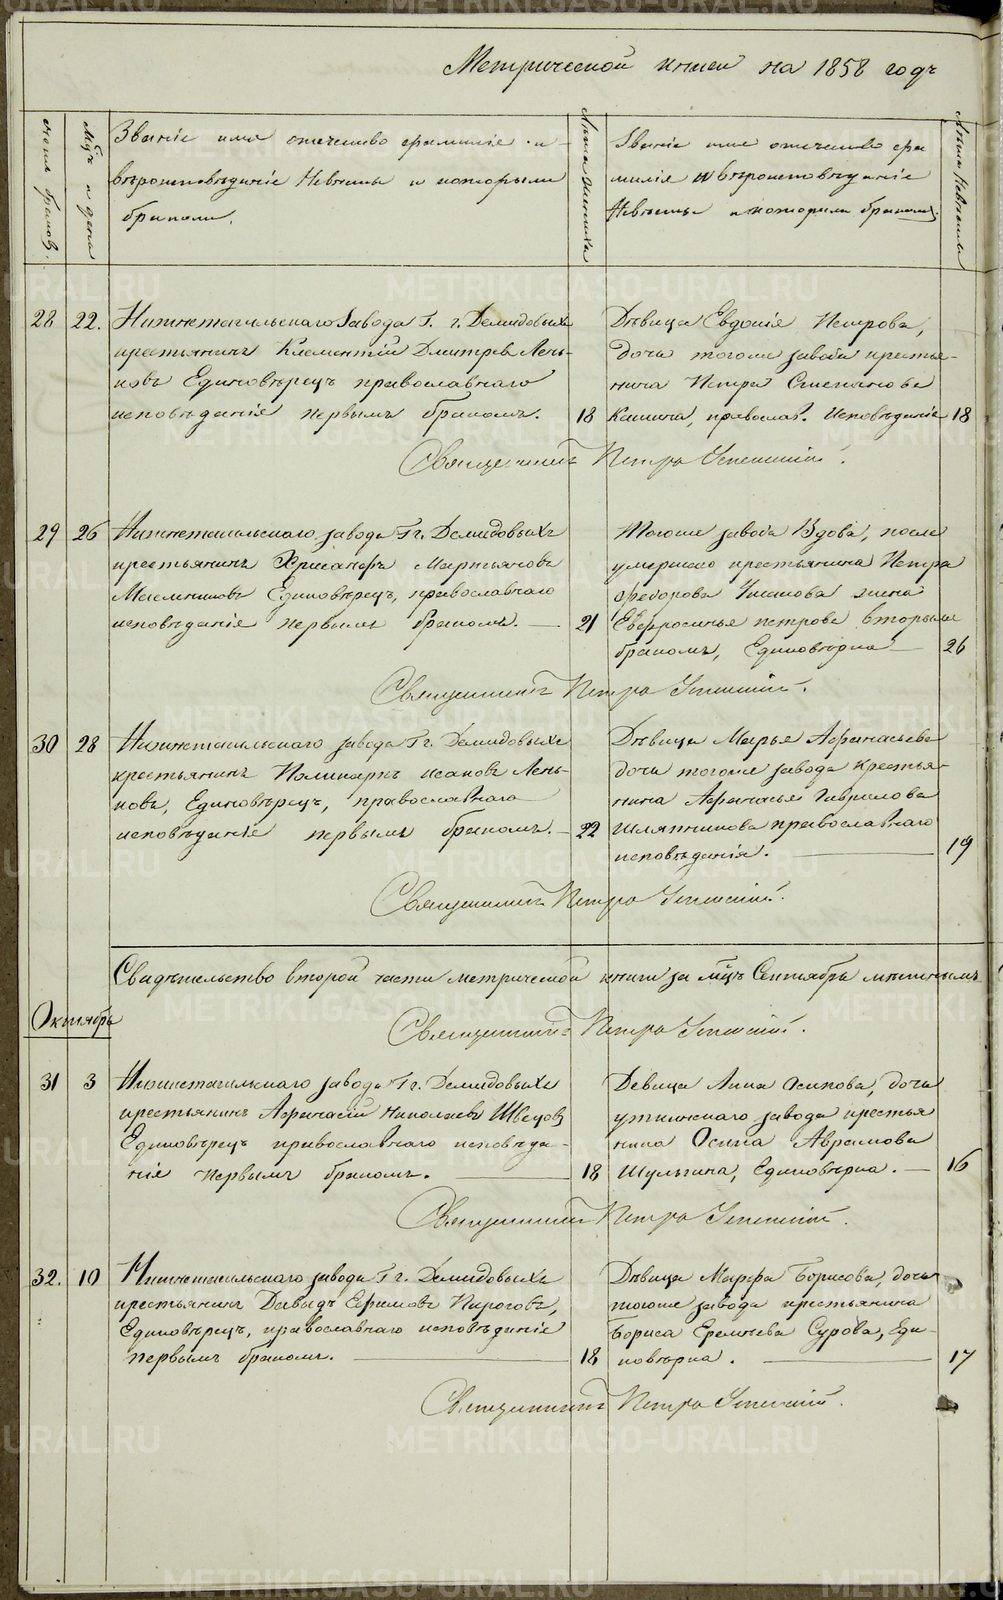 Метрической книги на 1858 годъ
число браковъ.
Мцъ и день
Званіе имя отечество фамиліе и
вѣроисповѣданіе Невѣсты и которымъ
бракомъ.
Лѣта жениха
Званіе имя отечество фа
милія и вѣроисповѣданіе
Невѣсты и которымъ бракомъ.
Лѣта Невѣсты
28 22. Нижнетагильскаго Завода Г. г. Демидовыхъ
крестьянинъ Климентій Дмитревъ Лень-
ковъ Единовѣрецъ православнаго
исповѣданія первымъ бракомъ. 18
Дѣвица Евдокія Петрова,
дочь тогоже завода крестья-
нина Петра Степанова
православ. исповѣданіе 18
Священникъ Петръ Успенскій.
29 26 Нижнетагильскаго завода Г г. Демидовыхъ
крестьянинъ Хрисанфъ Мартьяновъ
Масленниковъ Единовѣрецъ, православнаго
исповѣданіе первымъ бракомъ. 21
Тогоже завода Вдова, после
умершаго крестьянина Петра
Федорова Ушакова жена
Евфросинья петрова вторымъ
бракомъ, Единовѣрка 26
Священникъ Петръ Успенскій.
30 28 Нижнетагильскаго завода Г г. Демидовыхъ
крестьянинъ Поликарпъ Исаковъ Лень-
ковъ, Единовѣрецъ, православнаго
исповѣданіе первымъ бракомъ. 22
Дѣвица Марья Афанасьева
дочь тогоже завода Крестья-
нина Афанасья Гаврилова
Шляпникова православнаго
исповѣданія. 19
Священникъ Петръ Успенскій.
Свидѣтельство второй части метрической книги за мцъ Сентябрь
Священникъ Петръ Успенскій.
Октябрь
31 3 Нижнетагильскаго завода Г г. Демидовыхъ
крестьянинъ Афанасій Николаевъ Швецовъ
Единовѣрецъ православнаго исповѣда-
ніе первымъ бракомъ. 18
Девица Анна Осипова, дочь
уткинскаго завода крестья
нина Осипа Аврамова
Шульгина, Единовѣрка. 16
Священникъ Петръ Успенскій.
32. 10 Нижнетагильскаго завода Г г. Демидовыхъ
крестьянинъ Давыдъ Ефимовъ Пироговъ,
Единовѣрецъ, православнаго исповѣданіе
первымъ бракомъ. 18
Дѣвица Марфа Борисова, дочь
тогоже завода крестьянина
Бориса Еремѣева Сурова, Еди-
новѣрка. 17
Священникъ Петръ Успенскій.
METRIKI.GASO-URAL.RU